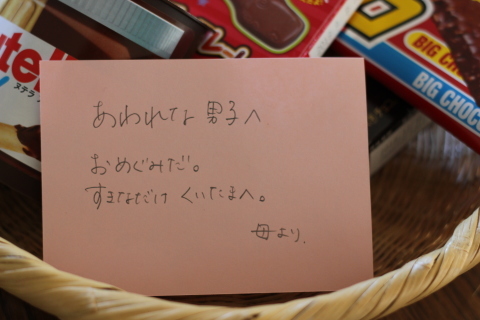 あわれな男子へ
おめぐみだ。
すきなだけ くいたまへ。
母より.
ヌテラ
BIG CHOC
BIG CHOC